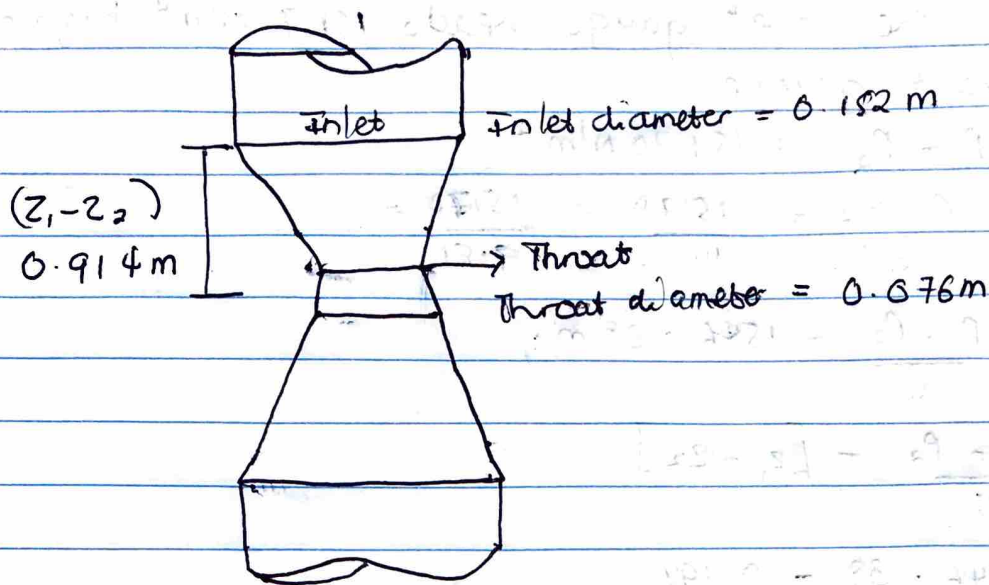 Inlet
Inlet diameter = 0.152 m
(Z₁-Z₂)
0.914 m
Throat
Throat diameter = 0.076m